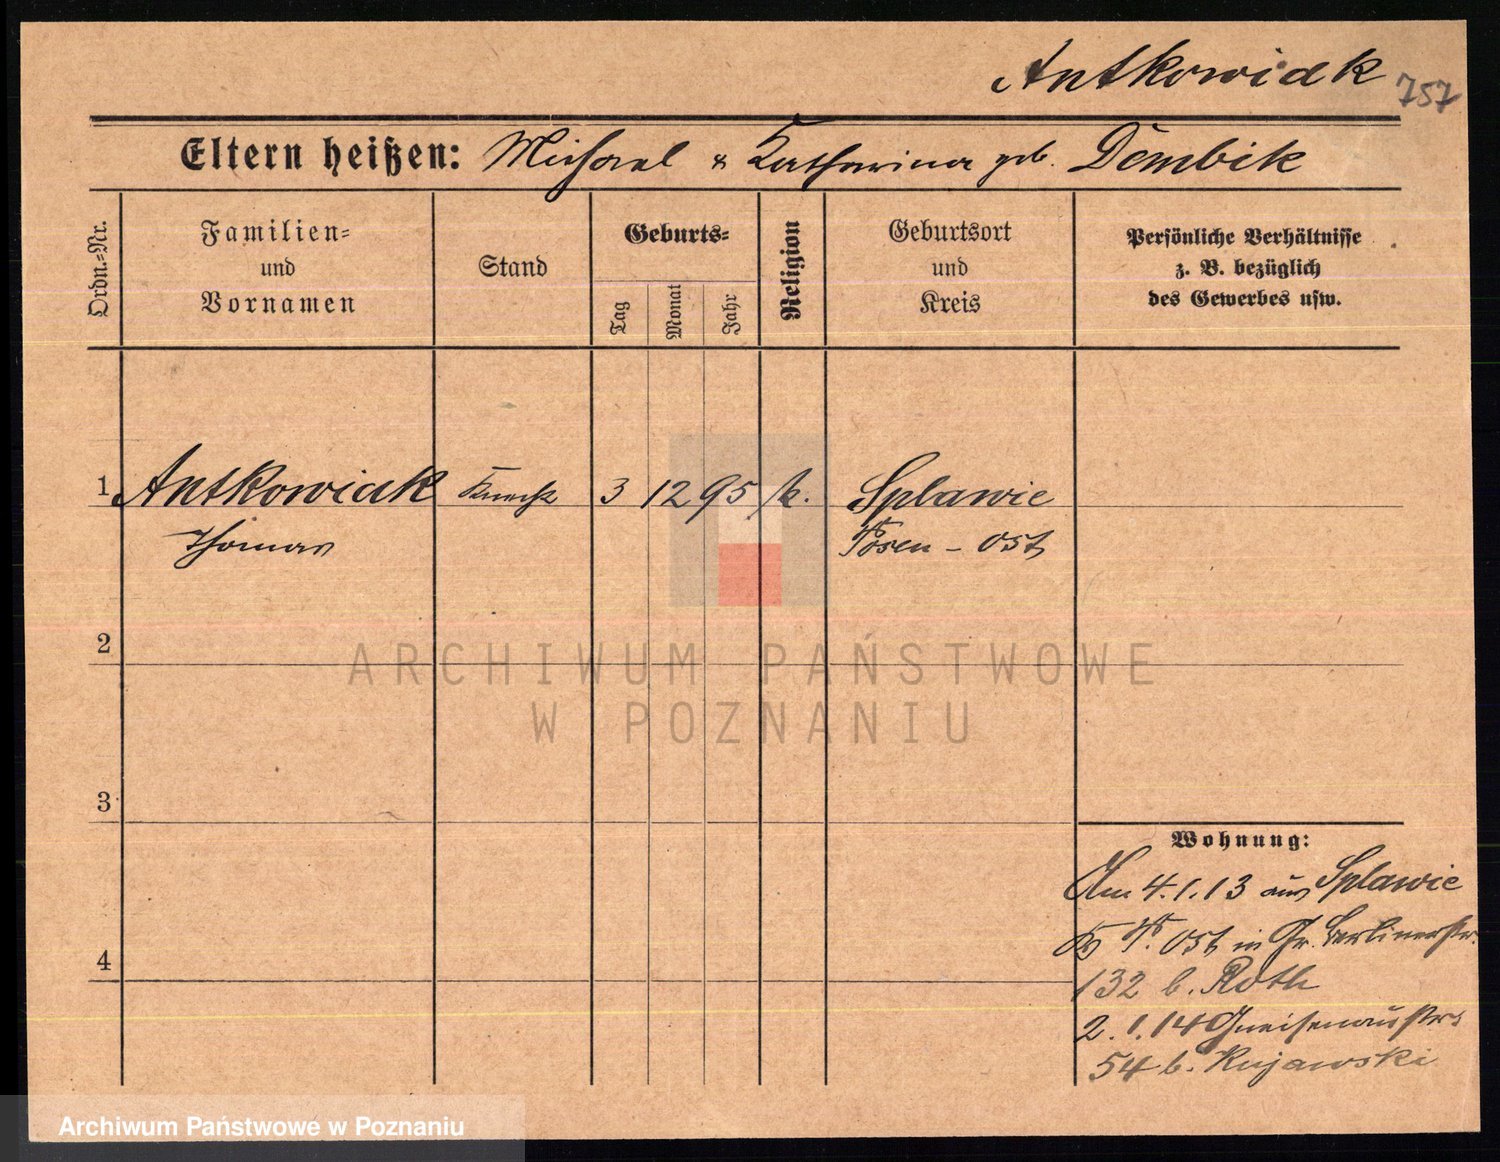 Antkowiak
757
Eltern heißen: Michael & Katharina geb. Dembik
Ordn.-Nr.
Familien-
und
Vornamen
Stand
Geburts-
Tag
Monat
Jahr
Religion
Geburtsort
und
Kreis
Persönliche Verhältnisse
z. B. bezüglich
des Gewerbes usw.
1 Antkowiak Knecht 3 12 95 k. Splawie
Thomas Posen - Ost
2
3
4
Wohnung:
Am 4.1.13 aus Splawie
P. Ost in Gr. Berlinerstr.
132 b. Roth
2.1.14 Gneisenaustr.
54 b. Kujawski
ARCHIWUM PAŃSTWOWE
W POZNANIU
Archiwum Państwowe w Poznaniu